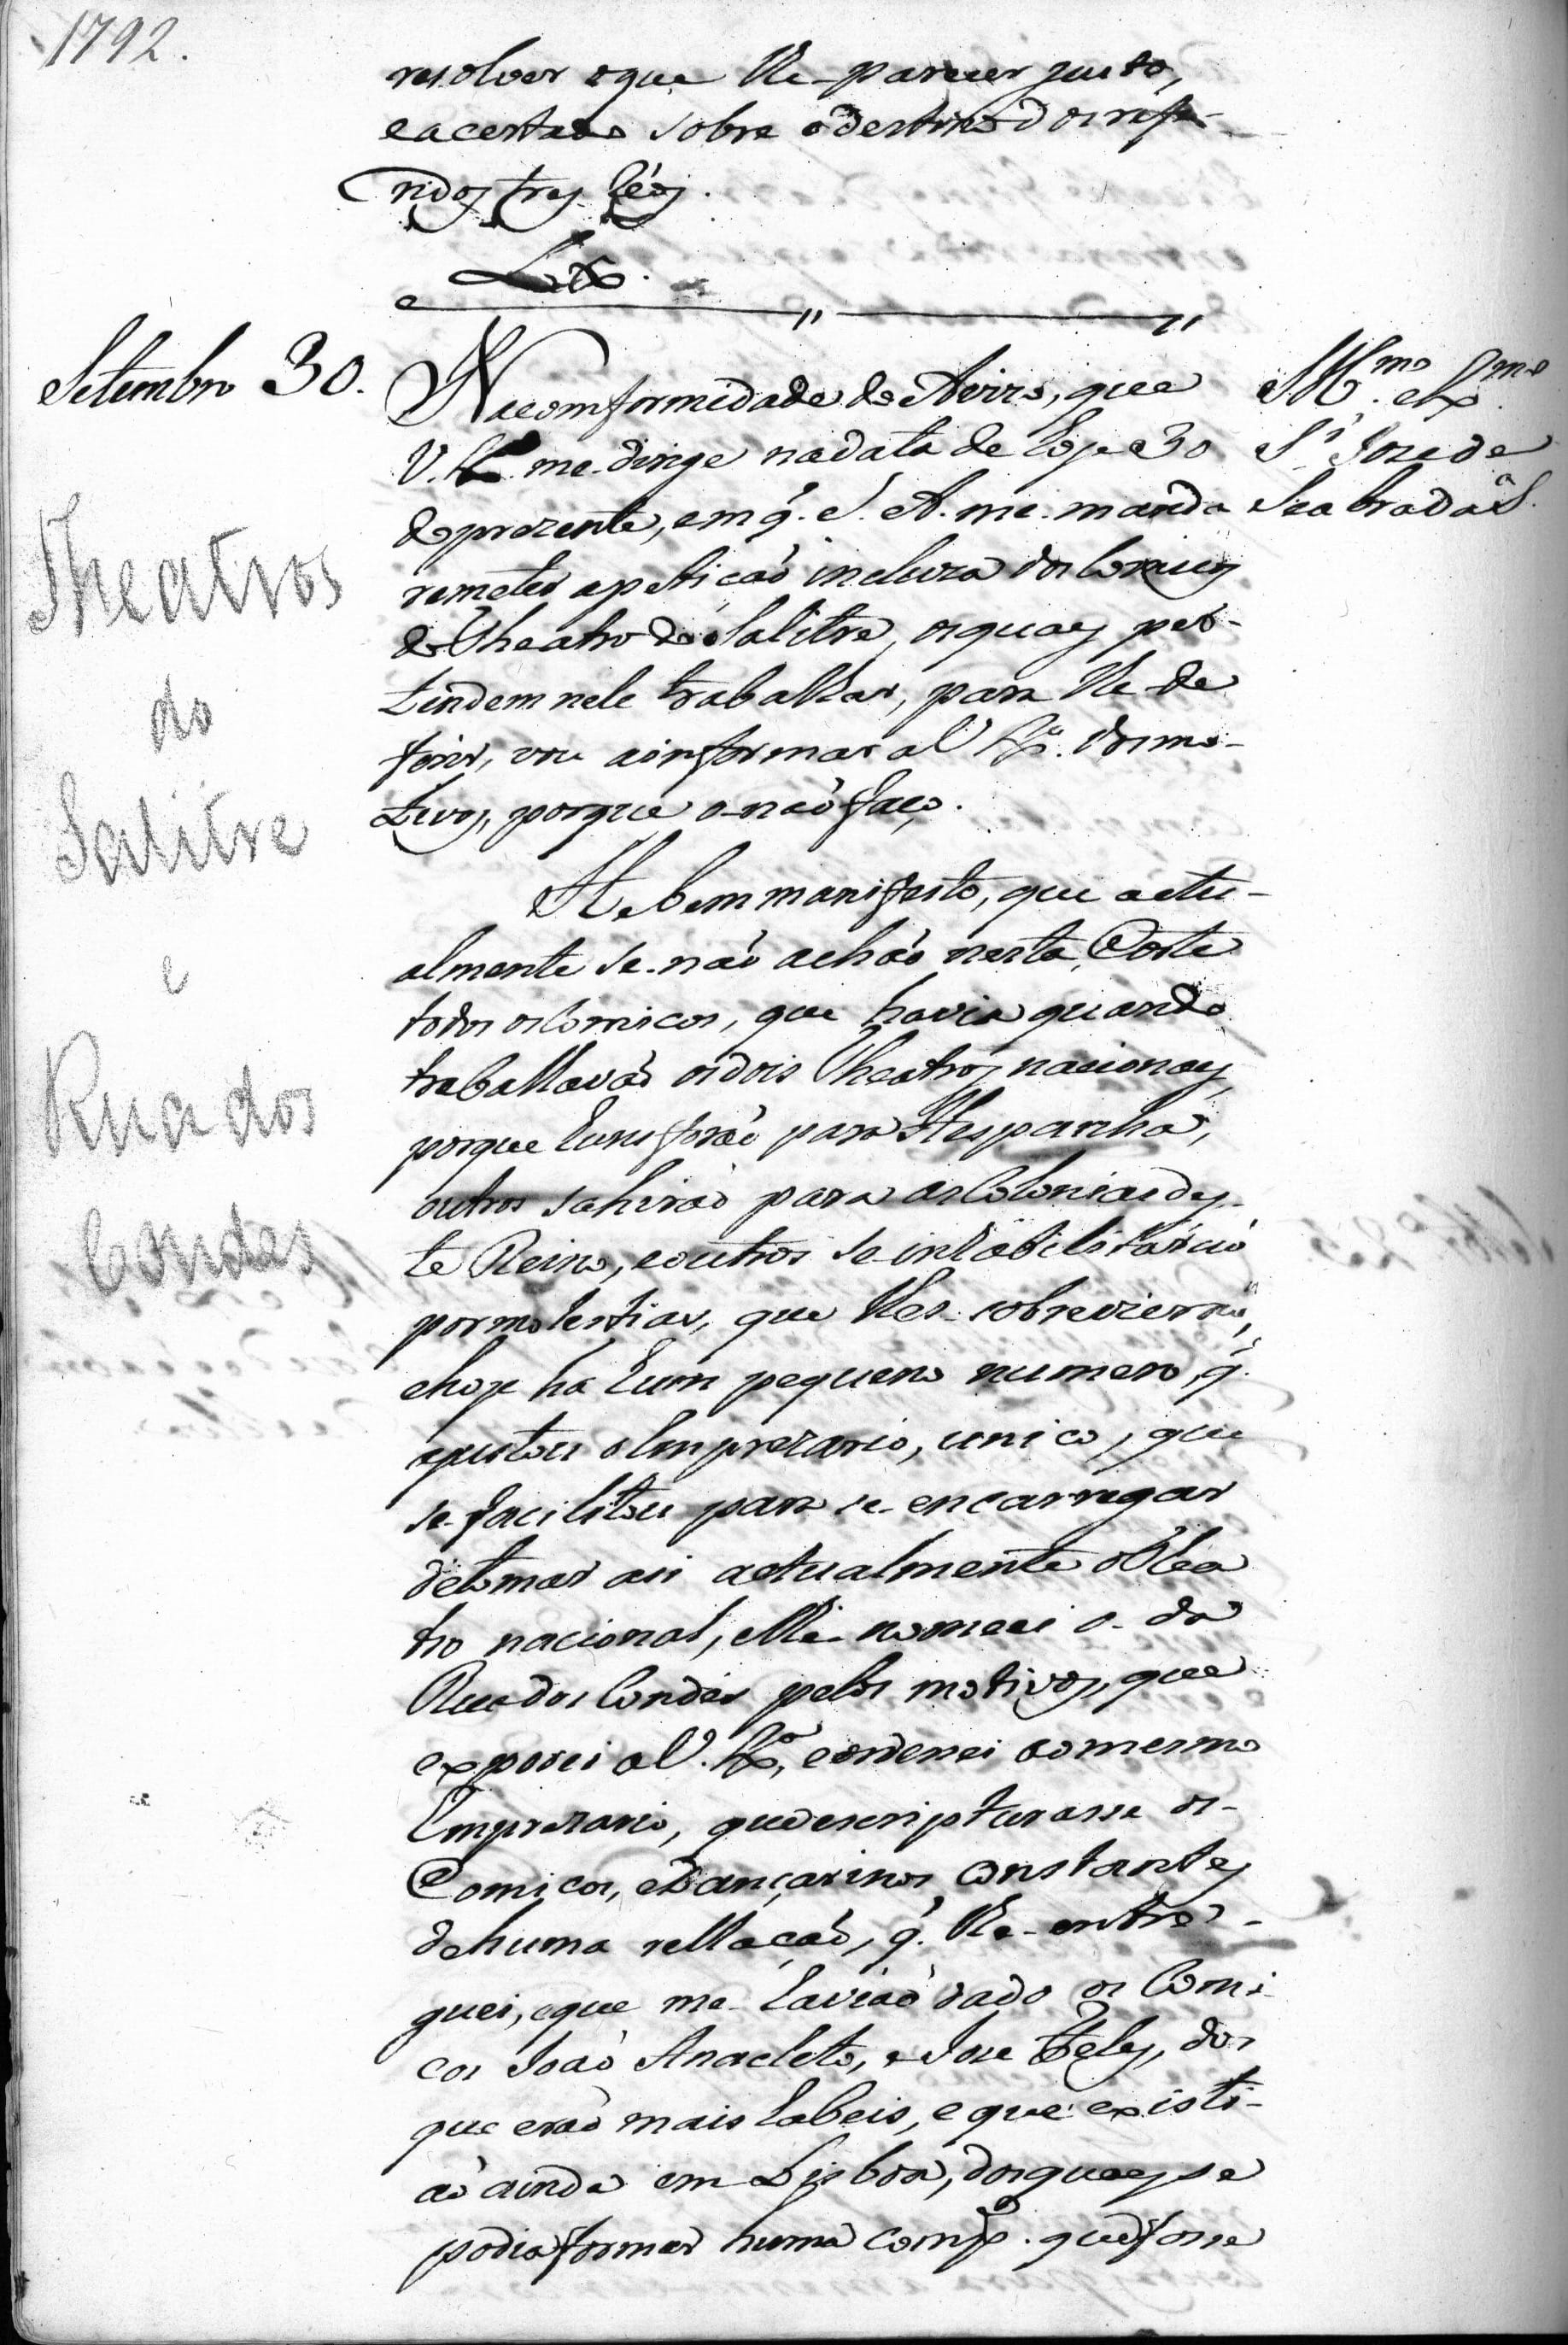 1792.
resolver oque lhe parecer justo,
e acertado sobre o destino dos refe-
ridos tres Réos.
Lxª.
Setembro 30.
Na conformidade do Avizo, que
V. Exª. me dirige na data de hoje 30
do prezente, em q̃. S. A. me manda
remeter a petição incluza dos Comicos
do Theatro do Salitre, os quaes per-
tendem nele trabalhar, para lhe de
ferir, vou a informar a V. Exª. dos mo-
tivos, porque o não faço.
Illmo. e Exmo.
Sr. Jozé de
Seabra da Sª.
Theatros
do
Salitre
e
Rua dos
Condes
He bem manifesto, que actu-
almente se não achão nesta Corte
todos os Comicos, que havia quando
trabalhavão os dois Theatros nacionaes,
porque huns forão para Hespanha,
outros sahirão para as Colonias des-
te Reino, e outros se inhabilitárão
por molestias, que lhes sobrevierão,
e hoje ha hum pequeno numero, q̃.
ajustou o Imprezario, unico, que
se facilitou para se encarregar
de tomar a si actualmente o Thea
tro nacional, e lhe nomeei o da
Rua dos Condes pelos motivos, que
expozei a V. Exª., e ordenei ao mesmo
Imprezario, que escripturasse os
Comicos, e Dançarinos constantes
de huma rellação, q̃. lhe entre-
guei, e que me havião dado os Comi-
cos João Anacleto, e Jose Felis, dos
que erão mais habeis, e que existi-
ão ainda em Lisboa, dos quaes se
podia formar huma Compª. que fosse